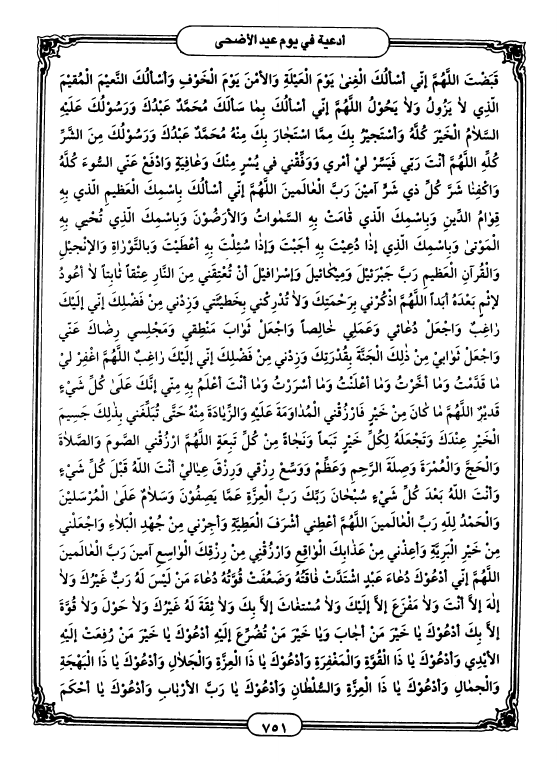 أدعية في يوم عيد الأضحى
قَبَضْتَ اللَّهُمَّ إنّي أسْألُكَ الْغِنىٰ يَوْمَ الْعَيْلَةِ وَالأَمْنَ يَوْمَ الْخَوْفِ وَأسْألُكَ النَّعيْمَ الْمُقيْمَ
الَّذي لاٰ يَزُولُ وَلاٰ يَحُولُ اللَّهُمَّ إنّي أسْألُكَ بِمٰا سَألَكَ مُحَمَّدٌ عَبْدُكَ وَرَسُولُكَ عَلَيْهِ
السَّلاٰمُ الْخَيْرَ كُلَّهُ وَأسْتَجيْرُ بِكَ مِمّا اسْتَجٰارَ بِكَ مِنْهُ مُحَمَّدٌ عَبْدُكَ وَرَسُولُكَ مِنَ الشَّرِّ
كُلِّهِ اللَّهُمَّ أنْتَ رَبّي فَيَسِّرْ ليْ أمْري وَوَفِّقْني في يُسْرٍ مِنْكَ وَعٰافِيَةٍ وَادْفَعْ عَنّي السُّوءَ كُلَّهُ
وَاكْفِنٰا شَرَّ كُلِّ ذي شَرٍّ آميْنَ رَبَّ الْعٰالَمينَ اللَّهُمَّ إنّي أسْألُكَ بِاسْمِكَ الْعَظيمِ الَّذي بِهِ
قِوٰامُ الدِّينِ وَبِاسْمِكَ الَّذي قٰامَتْ بِهِ السَّمٰوٰاتُ وَالأَرَضُوْنَ وَبِاسْمِكَ الَّذي تُحْيي بِهِ
الْمَوْتىٰ وَبِاسْمِكَ الَّذي إذٰا دُعيْتَ بِهِ أجَبْتَ وَإذٰا سُئِلْتَ بِهِ أعْطَيْتَ وَبِالتَّوْرٰاةِ وَالإنْجيْلِ
وَالْقُرآنِ الْعَظيمِ رَبَّ جَبْرَئيْلَ وَميْكٰائيلَ وَإسْرٰافيْلَ أنْ تُعْتِقَني مِنَ النّٰارِ عِتْقاً ثٰابِتاً لاٰ أعُودُ
لإثْمٍ بَعْدَهُ أبَداً اللَّهُمَّ اذْكُرْني بِرَحْمَتِكَ وَلاٰ تُذْكِرْني بِخَطيْئَتي وَزِدْني مِنْ فَضْلِكَ إنّي إلَيْكَ
رٰاغِبٌ وَاجْعَلْ دُعٰائي وَعَمَلي خٰالِصاً وَاجْعَلْ ثَوٰابَ مَنْطِقي وَمَجْلِسي رِضٰاكَ عَنّي
وَاجْعَلْ ثَوٰابيْ مِنْ ذٰلِكَ الْجَنَّةَ بِقُدْرَتِكَ وَزِدْني مِنْ فَضْلِكَ إنّي إلَيْكَ رٰاغِبٌ اللَّهُمَّ اغْفِرْ ليْ
مٰا قَدَّمْتُ وَمٰا أخَّرْتُ وَمٰا أعْلَنْتُ وَمٰا أسْرَرْتُ وَمٰا أنْتَ أعْلَمُ بِهِ مِنّي إنَّكَ عَلىٰ كُلِّ شَيْءٍ
قَديْرٌ اللَّهُمَّ مٰا كٰانَ مِنْ خَيْرٍ فَارْزُقْني الْمُدٰاوَمَةَ عَلَيْهِ وَالزِّيٰادَةَ مِنْهُ حَتّىٰ تُبَلِّغَني بِذٰلِكَ جَسيمَ
الْخَيْرِ عِنْدَكَ وَتَجْعَلَهُ لِكُلِّ خَيْرٍ تَبَعاً وَنَجٰاةً مِنْ كُلِّ تَبِعَةٍ اللَّهُمَّ ارْزُقْني الصَّومَ وَالصَّلاٰةَ
وَالْحَجَّ وَالْعُمْرَةَ وَصِلَةَ الرَّحِمِ وَعَظِّمْ وَوَسِّعْ رِزْقي وَرِزْقَ عِيٰاليْ أنْتَ اللهُ قَبْلَ كُلِّ شَيْءٍ
وَأنْتَ اللهُ بَعْدَ كُلِّ شَيْءٍ سُبْحٰانَ رَبِّكَ رَبِّ الْعِزَّةِ عَمّٰا يَصِفُوْنَ وَسَلاٰمٌ عَلىٰ الْمُرْسَليْنَ
وَالْحَمْدُ لِلَّهِ رَبِّ الْعٰالَمينَ اللَّهُمَّ أعْطِني أشْرَفَ الْعَطِيَّةِ وَأجِرْني مِنْ جُهْدِ الْبَلاٰءِ وَاجْعَلْني
مِنْ خَيْرِ الْبَرِيَّةِ وَأعِذْني مِنْ عَذٰابِكَ الْوٰاقِعِ وَارْزُقْني مِنْ رِزْقِكَ الْوٰاسِعِ آمينَ رَبَّ الْعٰالَمينَ
اللَّهُمَّ إنّي أدْعُوْكَ دُعٰاءَ عَبْدٍ اشْتَدَّتْ فٰاقَتُهُ وَضَعُفَتْ قُوَّتُهُ دُعٰاءَ مَنْ لَيْسَ لَهُ رَبٌّ غَيْرُكَ وَلاٰ
إلٰهَ إلاَّ أنْتَ وَلاٰ مَفْزَعَ إلاَّ إلَيْكَ وَلاٰ مُسْتَغٰاثَ إلاَّ بِكَ وَلاٰ ثِقَةَ لَهُ غَيْرُكَ وَلاٰ حَوْلَ وَلاٰ قُوَّةَ
إلاَّ بِكَ أدْعُوْكَ يٰا خَيْرَ مَنْ أجٰابَ وَيٰا خَيْرَ مَنْ تُضُرِّعَ إلَيْهِ أدْعُوْكَ يٰا خَيْرَ مَنْ رُفِعَتْ إلَيْهِ
الأيْدي وَأدْعُوْكَ يٰا ذَا الْقُوَّةِ وَالْمَغْفِرَةِ وَأدْعُوْكَ يٰا ذَا الْعِزَّةِ وَالْجَلاٰلِ وَأدْعُوْكَ يٰا ذَا الْبَهْجَةِ
وَالْجِمٰالِ وَأدْعُوْكَ يٰا ذَا الْعِزَّةِ وَالسُّلْطٰانِ وَأدْعُوْكَ يٰا رَبَّ الأرْبٰابِ وَأدْعُوْكَ يٰا أحْكَمَ
٧٥١